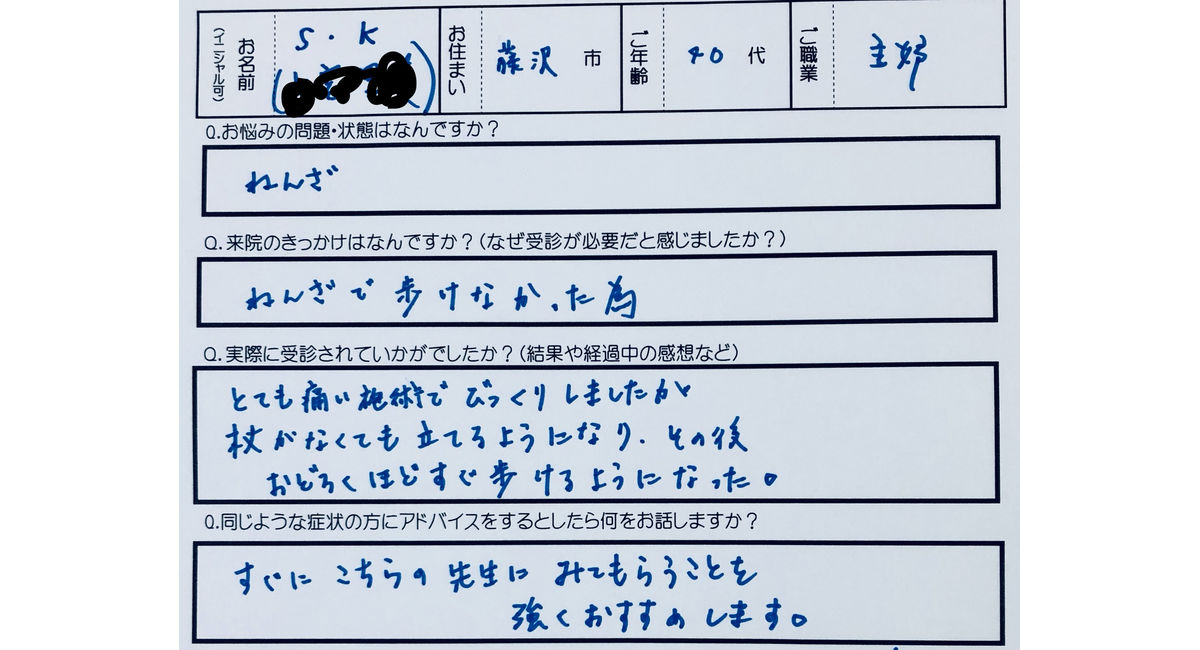 お名前 (イニシャル可) S・K お住まい 藤沢 市 ご年齢 40 代 ご職業 主婦
Q.お悩みの問題・状態はなんですか?
ねんざ
Q.来院のきっかけはなんですか?(なぜ受診が必要だと感じましたか?)
ねんざで歩けなかった為
Q.実際に受診されていかがでしたか?(結果や経過中の感想など)
とても痛い施術でびっくりしましたが
杖がなくても立てるようになり、その後
おどろくほどすぐ歩けるようになった。
Q.同じような症状の方にアドバイスをするとしたら何をお話しますか?
すぐにこちらの先生にみてもらうことを
強くおすすめします。